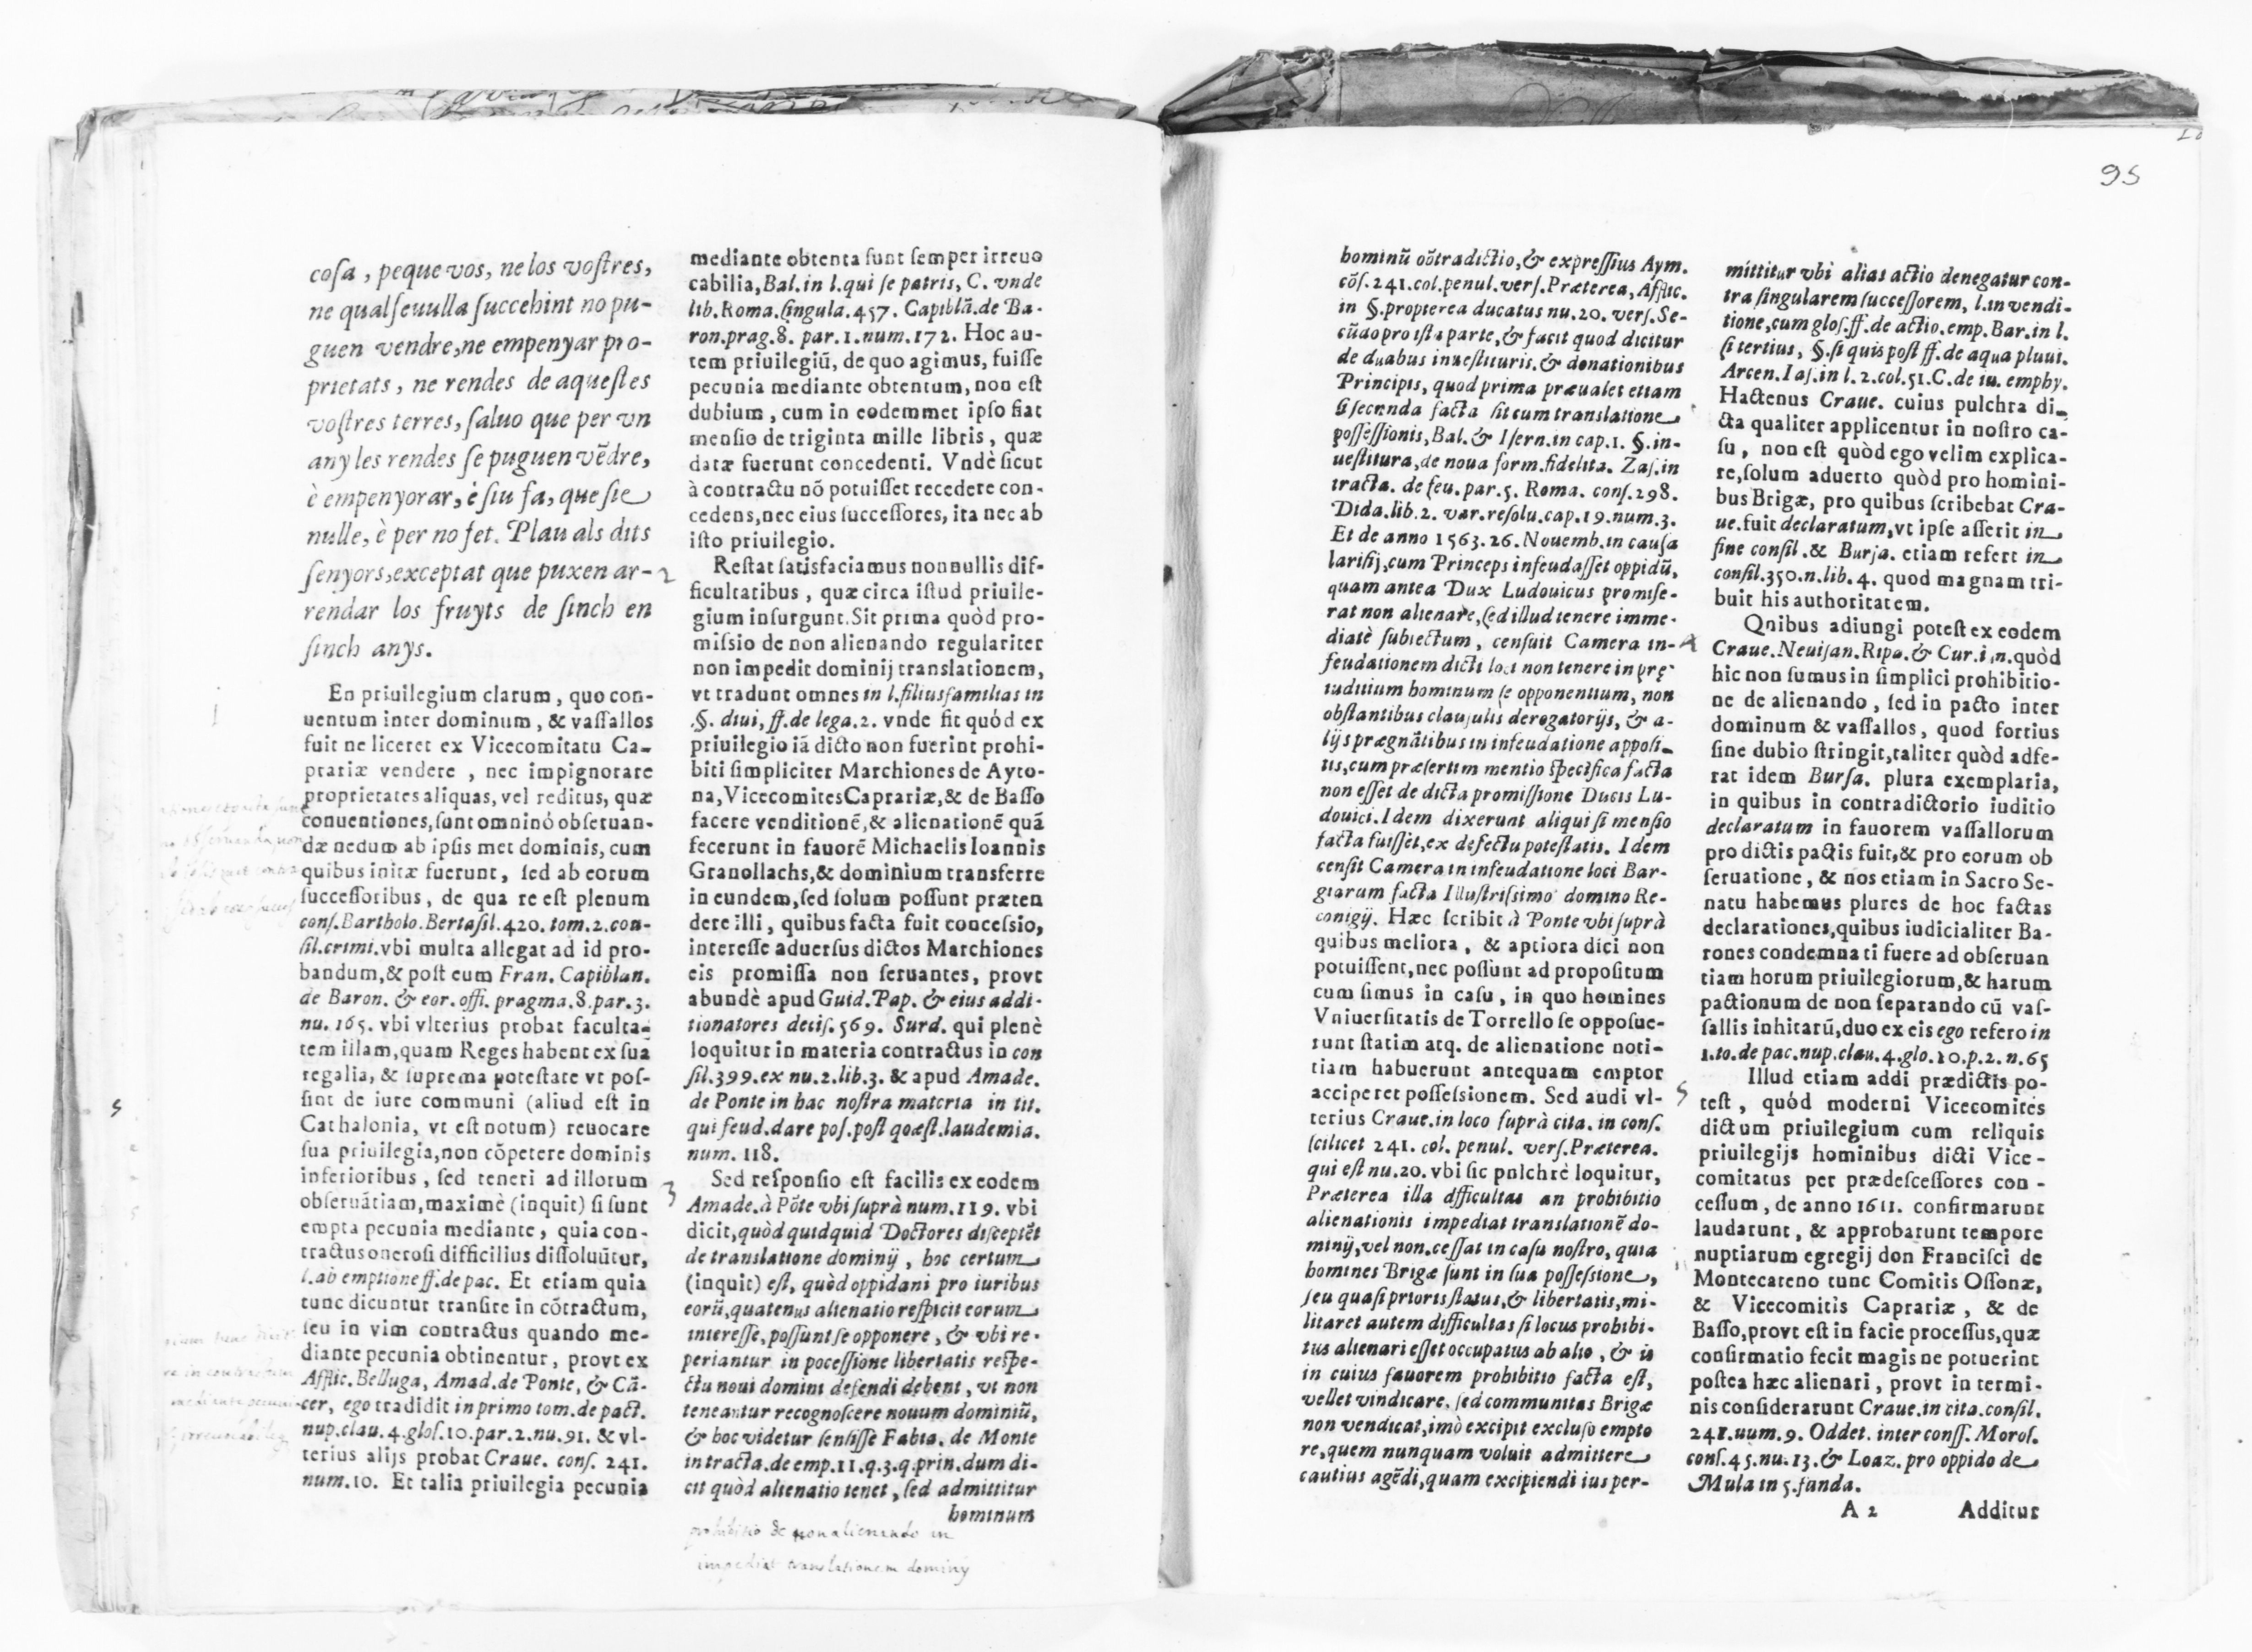 cosa, peque vos, ne los vostres,
ne qualseuulla succehint no pu-
guen vendre, ne empenyar pro-
prietats, ne rendes de aquestes
vostres terres, saluo que per vn
any les rendes se puguen vẽdre,
è empenyorar, è siu fa, que sie
nulle, è per no fet. Plau als dits
senyors, exceptat que puxen ar-
rendar los fruyts de sinch en
sinch anys.
En priuilegium clarum, quo con-
uentum inter dominum, & vassallos
fuit ne liceret ex Vicecomitatu Ca-
prariæ vendere, nec impignorare
proprietates aliquas, vel reditus, quæ
conuentiones, sunt omninò obseruan-
dæ nedum ab ipsis met dominis, cum
quibus initæ fuerunt, sed ab eorum
successoribus, de qua re est plenum
cons. Bartholo. Bertasil. 420. tom. 2. con-
sil. crimi. vbi multa allegat ad id pro-
bandum, & post eum Fran. Capiblan.
de Baron. & eor. offi. pragma. 8. par. 3.
nu. 165. vbi vlterius probat faculta-
tem illam, quam Reges habent ex sua
regalia, & suprema potestate vt pos-
sint de iure communi (aliud est in
Cathalonia, vt est notum) reuocare
sua priuilegia, non cõpetere dominis
inferioribus, sed teneri ad illorum
obseruãtiam, maximè (inquit) si sunt
empta pecunia mediante, quia con-
tractus onerosi difficilius dissoluũtur,
l. ab emptione ff. de pac. Et etiam quia
tunc dicuntur transire in cõtractum,
seu in vim contractus quando me-
diante pecunia obtinentur, provt ex
Afflic. Belluga, Amad. de Ponte, & Cã-
cer, ego tradidit in primo tom. de pact.
nup. clau. 4. glos. 10. par. 2. nu. 91. & vl-
terius alijs probat Craue. cons. 241.
num. 10. Et talia priuilegia pecunia
1
5
mediante obtenta sunt semper irreuo
cabilia, Bal. in l. qui se patris, C. vnde
lib. Roma. singula. 457. Capiblã. de Ba-
ron. prag. 8. par. 1. num. 172. Hoc au-
tem priuilegiũ, de quo agimus, fuisse
pecunia mediante obtentum, non est
dubium, cum in eodemmet ipso fiat
mensio de triginta mille libris, quæ
datæ fuerunt concedenti. Vndè sicut
à contractu nõ potuisset recedere con-
cedens, nec eius successores, ita nec ab
isto priuilegio.
2
Restat satisfaciamus nonnullis dif-
ficultatibus, quæ circa istud priuile-
gium insurgunt. Sit prima quòd pro-
missio de non alienando regulariter
non impedit dominij translationem,
vt tradunt omnes in l. filiusfamilias in
§. diui, ff. de lega. 2. vnde fit quòd ex
priuilegio iã dicto non fuerint prohi-
biti simpliciter Marchiones de Ayto-
na, Vicecomites Caprariæ, & de Basso
facere venditionẽ, & alienationẽ quã
fecerunt in fauorẽ Michaelis Ioannis
Granollachs, & dominium transferre
in eundem, sed solum possunt præten
dere illi, quibus facta fuit concessio,
interesse aduersus dictos Marchiones
eis promissa non seruantes, provt
abundè apud Guid. Pap. & eius addi-
tionatores decis. 569. Surd. qui plenè
loquitur in materia contractus in con
sil. 399. ex nu. 2. lib. 3. & apud Amade.
de Ponte in hac nostra materia in tit.
qui feud. dare pos. post qoæst. laudemia.
num. 118.
3
Sed responsio est facilis ex eodem
Amade. à Põte vbi suprà num. 119. vbi
dicit, quòd quidquid Doctores disceptẽt
de translatione dominij, hoc certum
(inquit) est, quòd oppidani pro iuribus
eorũ, quatenus alienatio respicit eorum
interesse, possunt se opponere, & vbi re-
periantur in pocessione libertatis respe-
ctu noui domini defendi debent, vt non
teneantur recognoscere nouum dominiũ,
& hoc videtur sensisse Fabia. de Monte
in tracta. de emp. 11. q. 3. q. prin. dum di-
cit quòd alienatio tenet, sed admittitur
hominum
prohibitio de non alienando in
impediat translationem dominij
95
hominũ cõtradictio, & expressius Aym.
cõs. 241. col. penul. vers. Præterea, Afflic.
in §. propterea ducatus nu. 20. vers. Se-
cũdo pro ista parte, & facit quod dicitur
de duabus inuestituris, & donationibus
Principis, quod prima præualet etiam
si secunda facta sit cum translatione
possessionis, Bal. & Isern. in cap. 1. §. in-
uestitura, de noua form. fidelita. Zas. in
tracta. de feu. par. 5. Roma. cons. 298.
Dida. lib. 2. var. resolu. cap. 19. num. 3.
Et de anno 1563. 26. Nouemb. in causa
larisij, cum Princeps infeudasset oppidũ,
quam antea Dux Ludouicus promise-
rat non alienare, sed illud tenere imme-
diatè subiectum, censuit Camera in-
feudationem dicti loci non tenere in prę-
iuditium hominum se opponentium, non
obstantibus clausulis derogatorijs, & a-
lijs prægnãtibus in infeudatione apposi-
tis, cum præsertim mentio specifica facta
non esset de dicta promissione Ducis Lu-
douici. Idem dixerunt aliqui si mensio
facta fuisset, ex defectu potestatis. Idem
censit Camera in infeudatione loci Bar-
giarum facta Illustrissimo domino Re-
conigij. Hæc scribit à Ponte vbi suprà
quibus meliora, & aptiora dici non
potuissent, nec possunt ad propositum
cum simus in casu, in quo homines
Vniuersitatis de Torrello se opposue-
runt statim atq. de alienatione noti-
tiam habuerunt antequam emptor
acciperet possessionem. Sed audi vl-
terius Craue. in loco suprà cita. in cons.
scilicet 241. col. penul. vers. Præterea.
qui est nu. 20. vbi sic pulchrè loquitur,
Præterea illa difficultas an prohibitio
alienationis impediat translationẽ do-
minij, vel non, cessat in casu nostro, quia
homines Brigæ sunt in sua possessione,
seu quasi prioris status, & libertatis, mi-
litaret autem difficultas si locus prohibi-
tus alienari esset occupatus ab alio, & is
in cuius fauorem prohibitio facta est,
vellet vindicare. sed communitas Brigæ
non vendicat, imò excipit excluso empto
re, quem nunquam voluit admittere
cautius agẽdi, quam excipiendi ius per-
mittitur vbi alias actio denegatur con-
tra singularem successorem, l. in vendi-
tione, cum glos. ff. de actio. emp. Bar. in l.
si tertius, §. si quis post ff. de aqua pluui.
Arcen. Ias. in l. 2. col. 51. C. de iu. emphy.
Hactenus Craue. cuius pulchra di-
cta qualiter applicentur in nostro ca-
su, non est quòd ego velim explica-
re, solum aduerto quòd pro homini-
bus Brigæ, pro quibus scribebat Cra-
ue. fuit declaratum, vt ipse asserit in
fine consil. & Bursa. etiam refert in
consil. 350. n. lib. 4. quod magnam tri-
buit his authoritatem.
4
Qnibus adiungi potest ex eodem
Craue. Neuisan. Ripa. & Cur. i n. quòd
hic non sumus in simplici prohibitio-
ne de alienando, sed in pacto inter
dominum & vassallos, quod fortius
sine dubio stringit, taliter quòd adfe-
rat idem Bursa. plura exemplaria,
in quibus in contradictorio iuditio
declaratum in fauorem vassallorum
pro dictis pactis fuit, & pro eorum ob
seruatione, & nos etiam in Sacro Se-
natu habemus plures de hoc factas
declarationes, quibus iudicialiter Ba-
rones condemnati fuere ad obseruan
tiam horum priuilegiorum, & harum
pactionum de non separando cũ vas-
sallis inhitarũ, duo ex eis ego refero in
1. to. de pac. nup. clau. 4. glo. 10. p. 2. n. 65
5
Illud etiam addi prædictis po-
test, quòd moderni Vicecomites
dictum priuilegium cum reliquis
priuilegijs hominibus dicti Vice-
comitatus per prædescessores con-
cessum, de anno 1611. confirmarunt
laudarunt, & approbarunt tempore
nuptiarum egregij don Francisci de
Montecateno tunc Comitis Ossonæ,
& Vicecomitis Caprariæ, & de
Basso, provt est in facie processus, quæ
confirmatio fecit magis ne potuerint
postea hæc alienari, provt in termi-
nis considerarunt Craue. in cita. consil.
241. uum. 9. Oddet. inter conss. Moros.
cons. 45. nu. 13. & Loaz. pro oppido de
Mula in 5. funda.
A 2 Additur